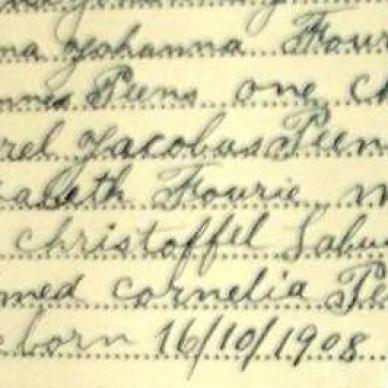 na Johanna Four
nnis Peens one ch
rel Jacobus Peen
zabeth Fourie m
Christoffel Labu
med cornelia Pe
born 16/10/1908